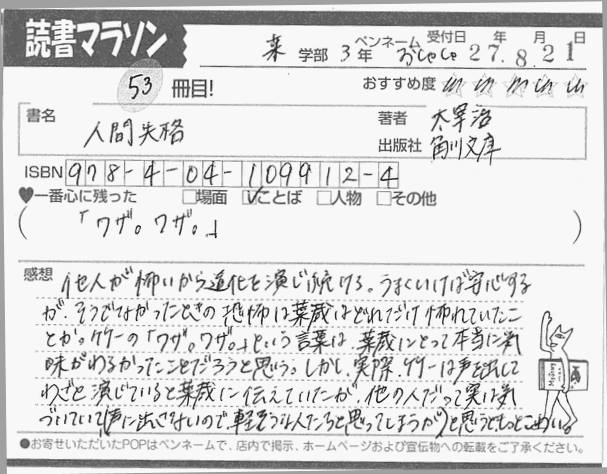 読書マラソン
薬 学部 3 年 ペンネーム おしゃしゃ 受付日 27 年 8 月 21 日
53 冊目!
おすすめ度
書名 人間失格
著者 太宰治
出版社 角川文庫
ISBN 978-4-04-109912-4
♥一番心に残った □場面 ☑ことば □人物 □その他
(「ワザ。ワザ。」)
感想 他人が怖いから道化を演じ続ける。うまくいけば安心する
が、そうでなかったときの恐怖は葉蔵はどれだけ怖れていたこ
とか。ケケーの「ワザ。ワザ。」という言葉は、葉蔵にとって本当に気
味がわるかったことだろうと思う。しかし、実際、ケケーは声を出して
わざと演じていると葉蔵に伝えていたが、他の人だって実は気
づいていて(声に出さないので、軽そうな人たちと思ってしまうが)と思うともっとこわい。
●お寄せいただいたPOPはペンネームで、店内で掲示、ホームページおよび宣伝物への転載をご了承ください。